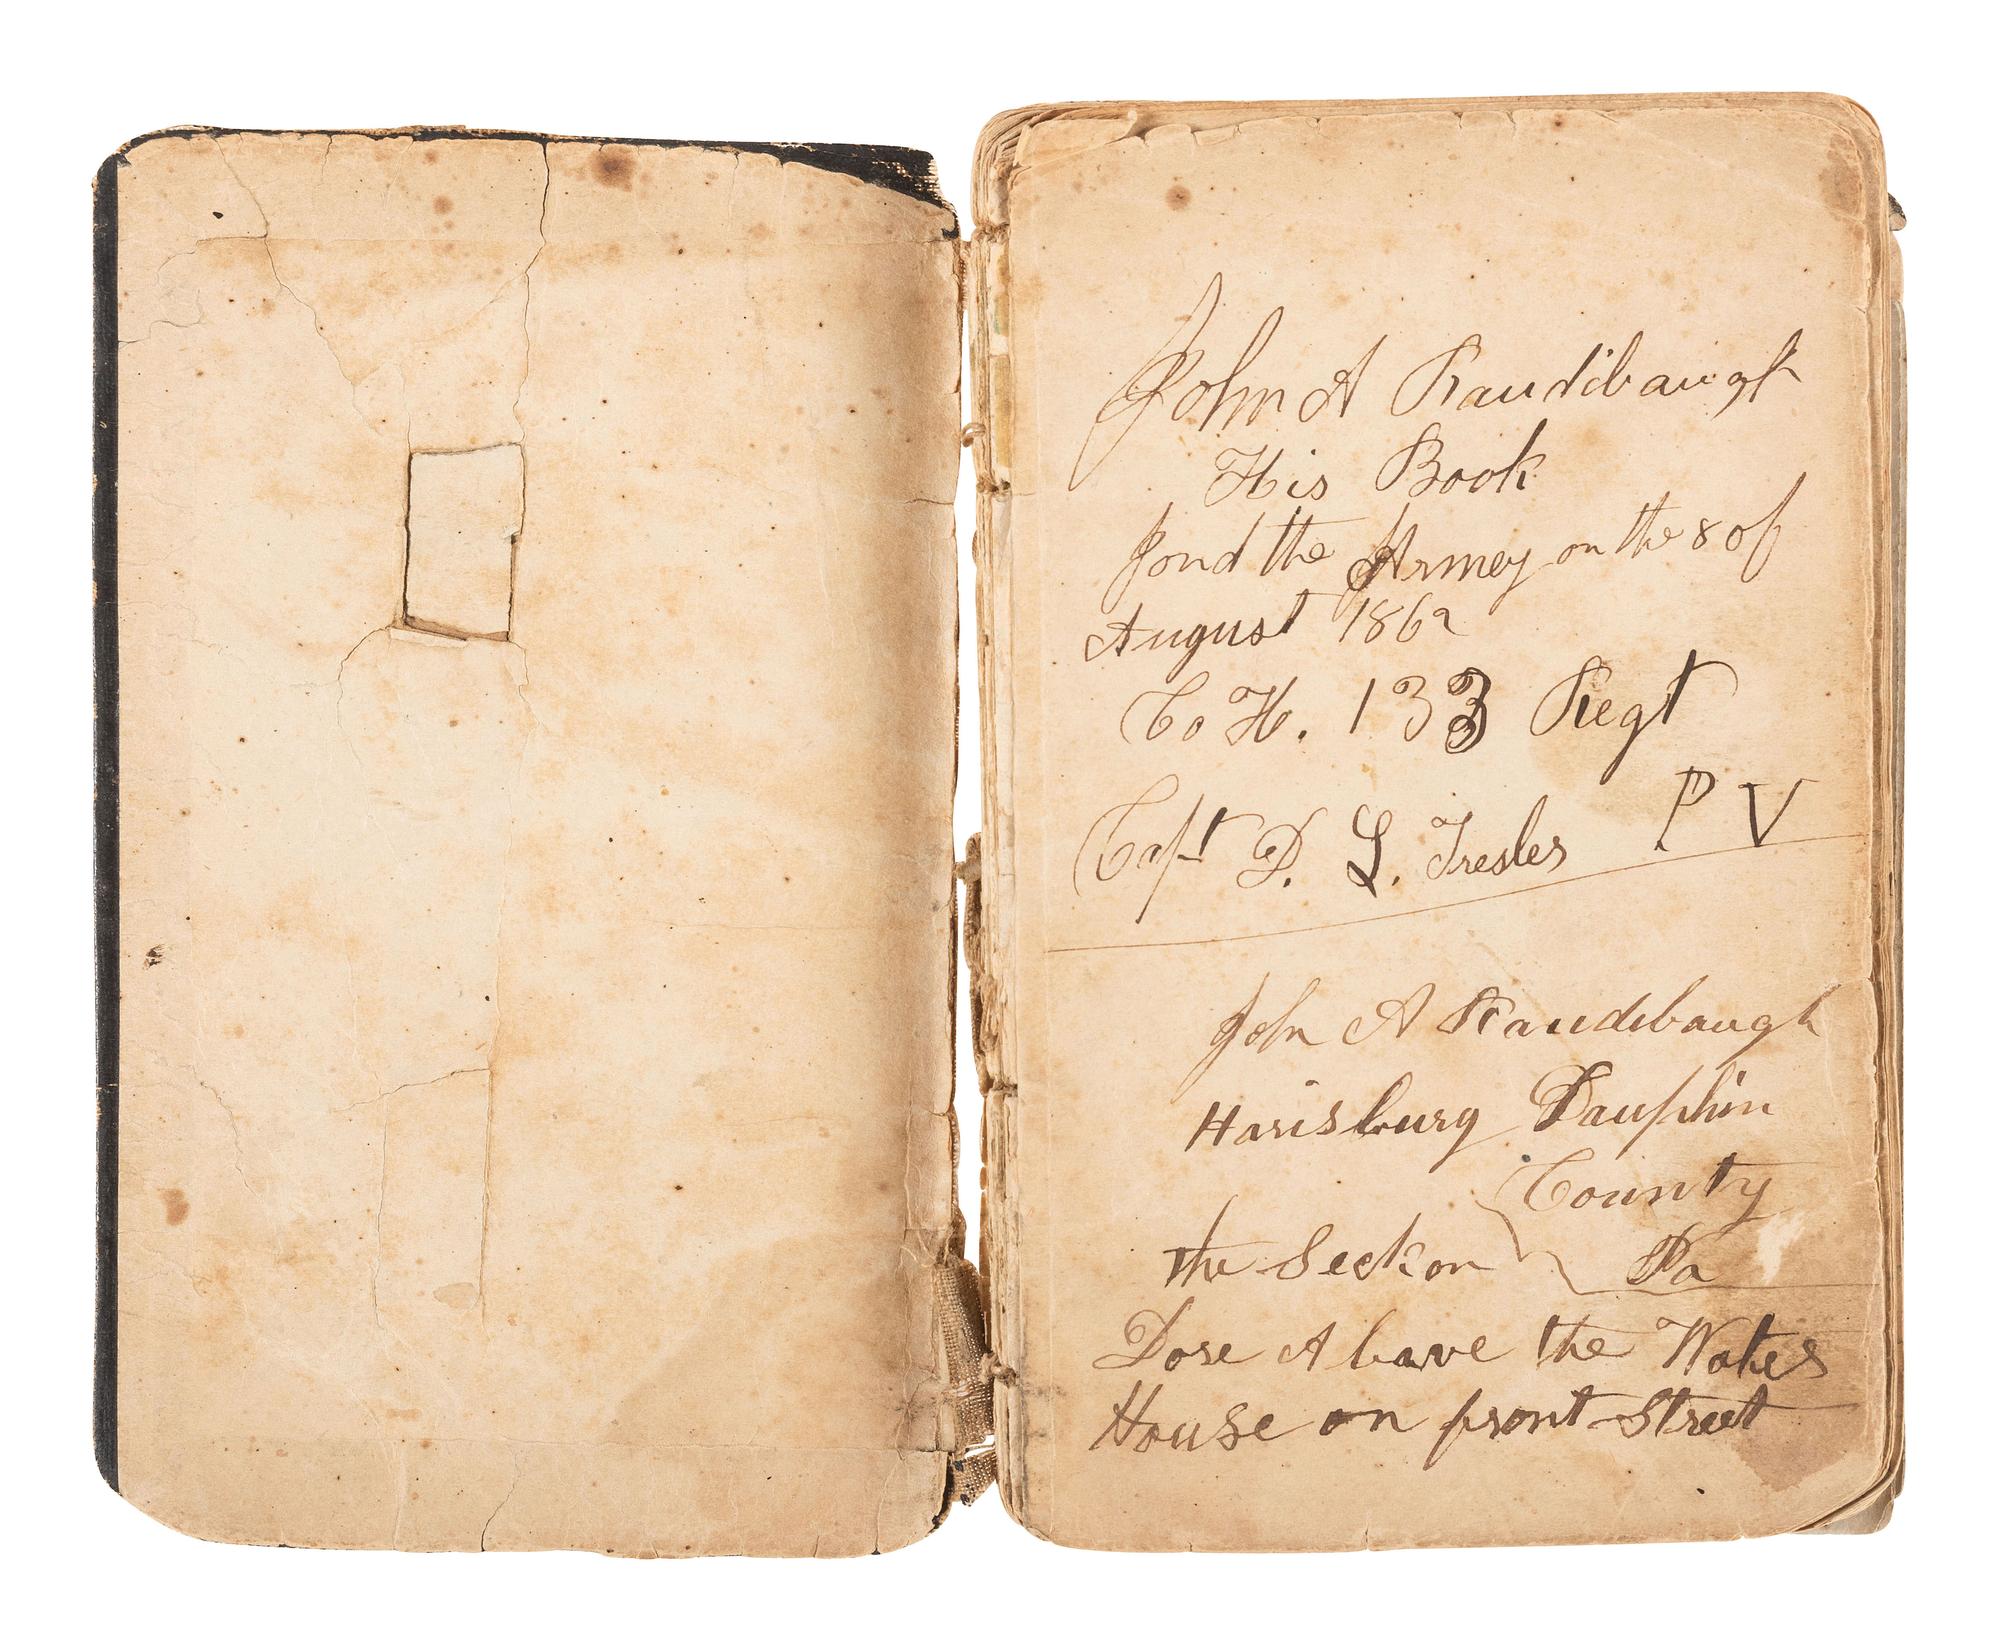 John A Raudibaugh
His Book
Jond the Armey on the 8 of
August 1862
Co H. 133 Regt
P V
Capt D. L. Tresler
John A Raudibaugh
Harisburg Dauphin
County
the Seckon Pa
Dore Abave the Water
House on front Street